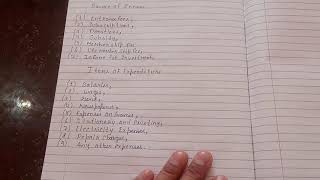 (1) Entrance fees,
(2) Subscriptions,
(3) Donations,
(4) Subsidy,
(5) Membership fee,
(6)
(7) Income from Investment.
Items of Expenditure
(1) Salaries,
(2) Wages,
(3) Rent,
(4) Newspapers,
(5) Expenses on
(6) Stationary and Printing,
(7) Electricity Expenses,
(8) Repair Charges,
(9) Any other expenses.